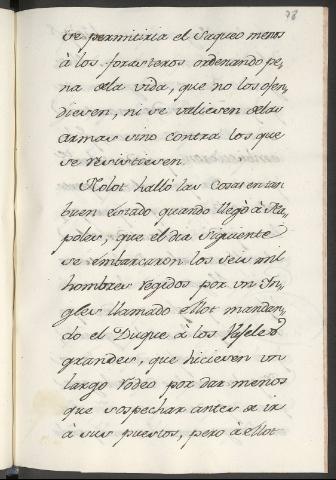 78
se permitiria el saqueo menos
à los forasteros ordenando pe,
na dela vida, que no los ofen,
diesen, ni se valiesen delas
armas sino contra los que
se resistiesen.
Rolot halló las cosas en tan
buen estado quando llegò à Ná,
poles, que el dia siguiente
se embarcaron los seis mil
hombres regidos por un In,
gles llamado ellot mandan,
do el Duque à los Vaseles
grandes, que hiciesen un
largo rodeo por dar menos
que sospechar antes de ir
à sus puestos, pero à ellot